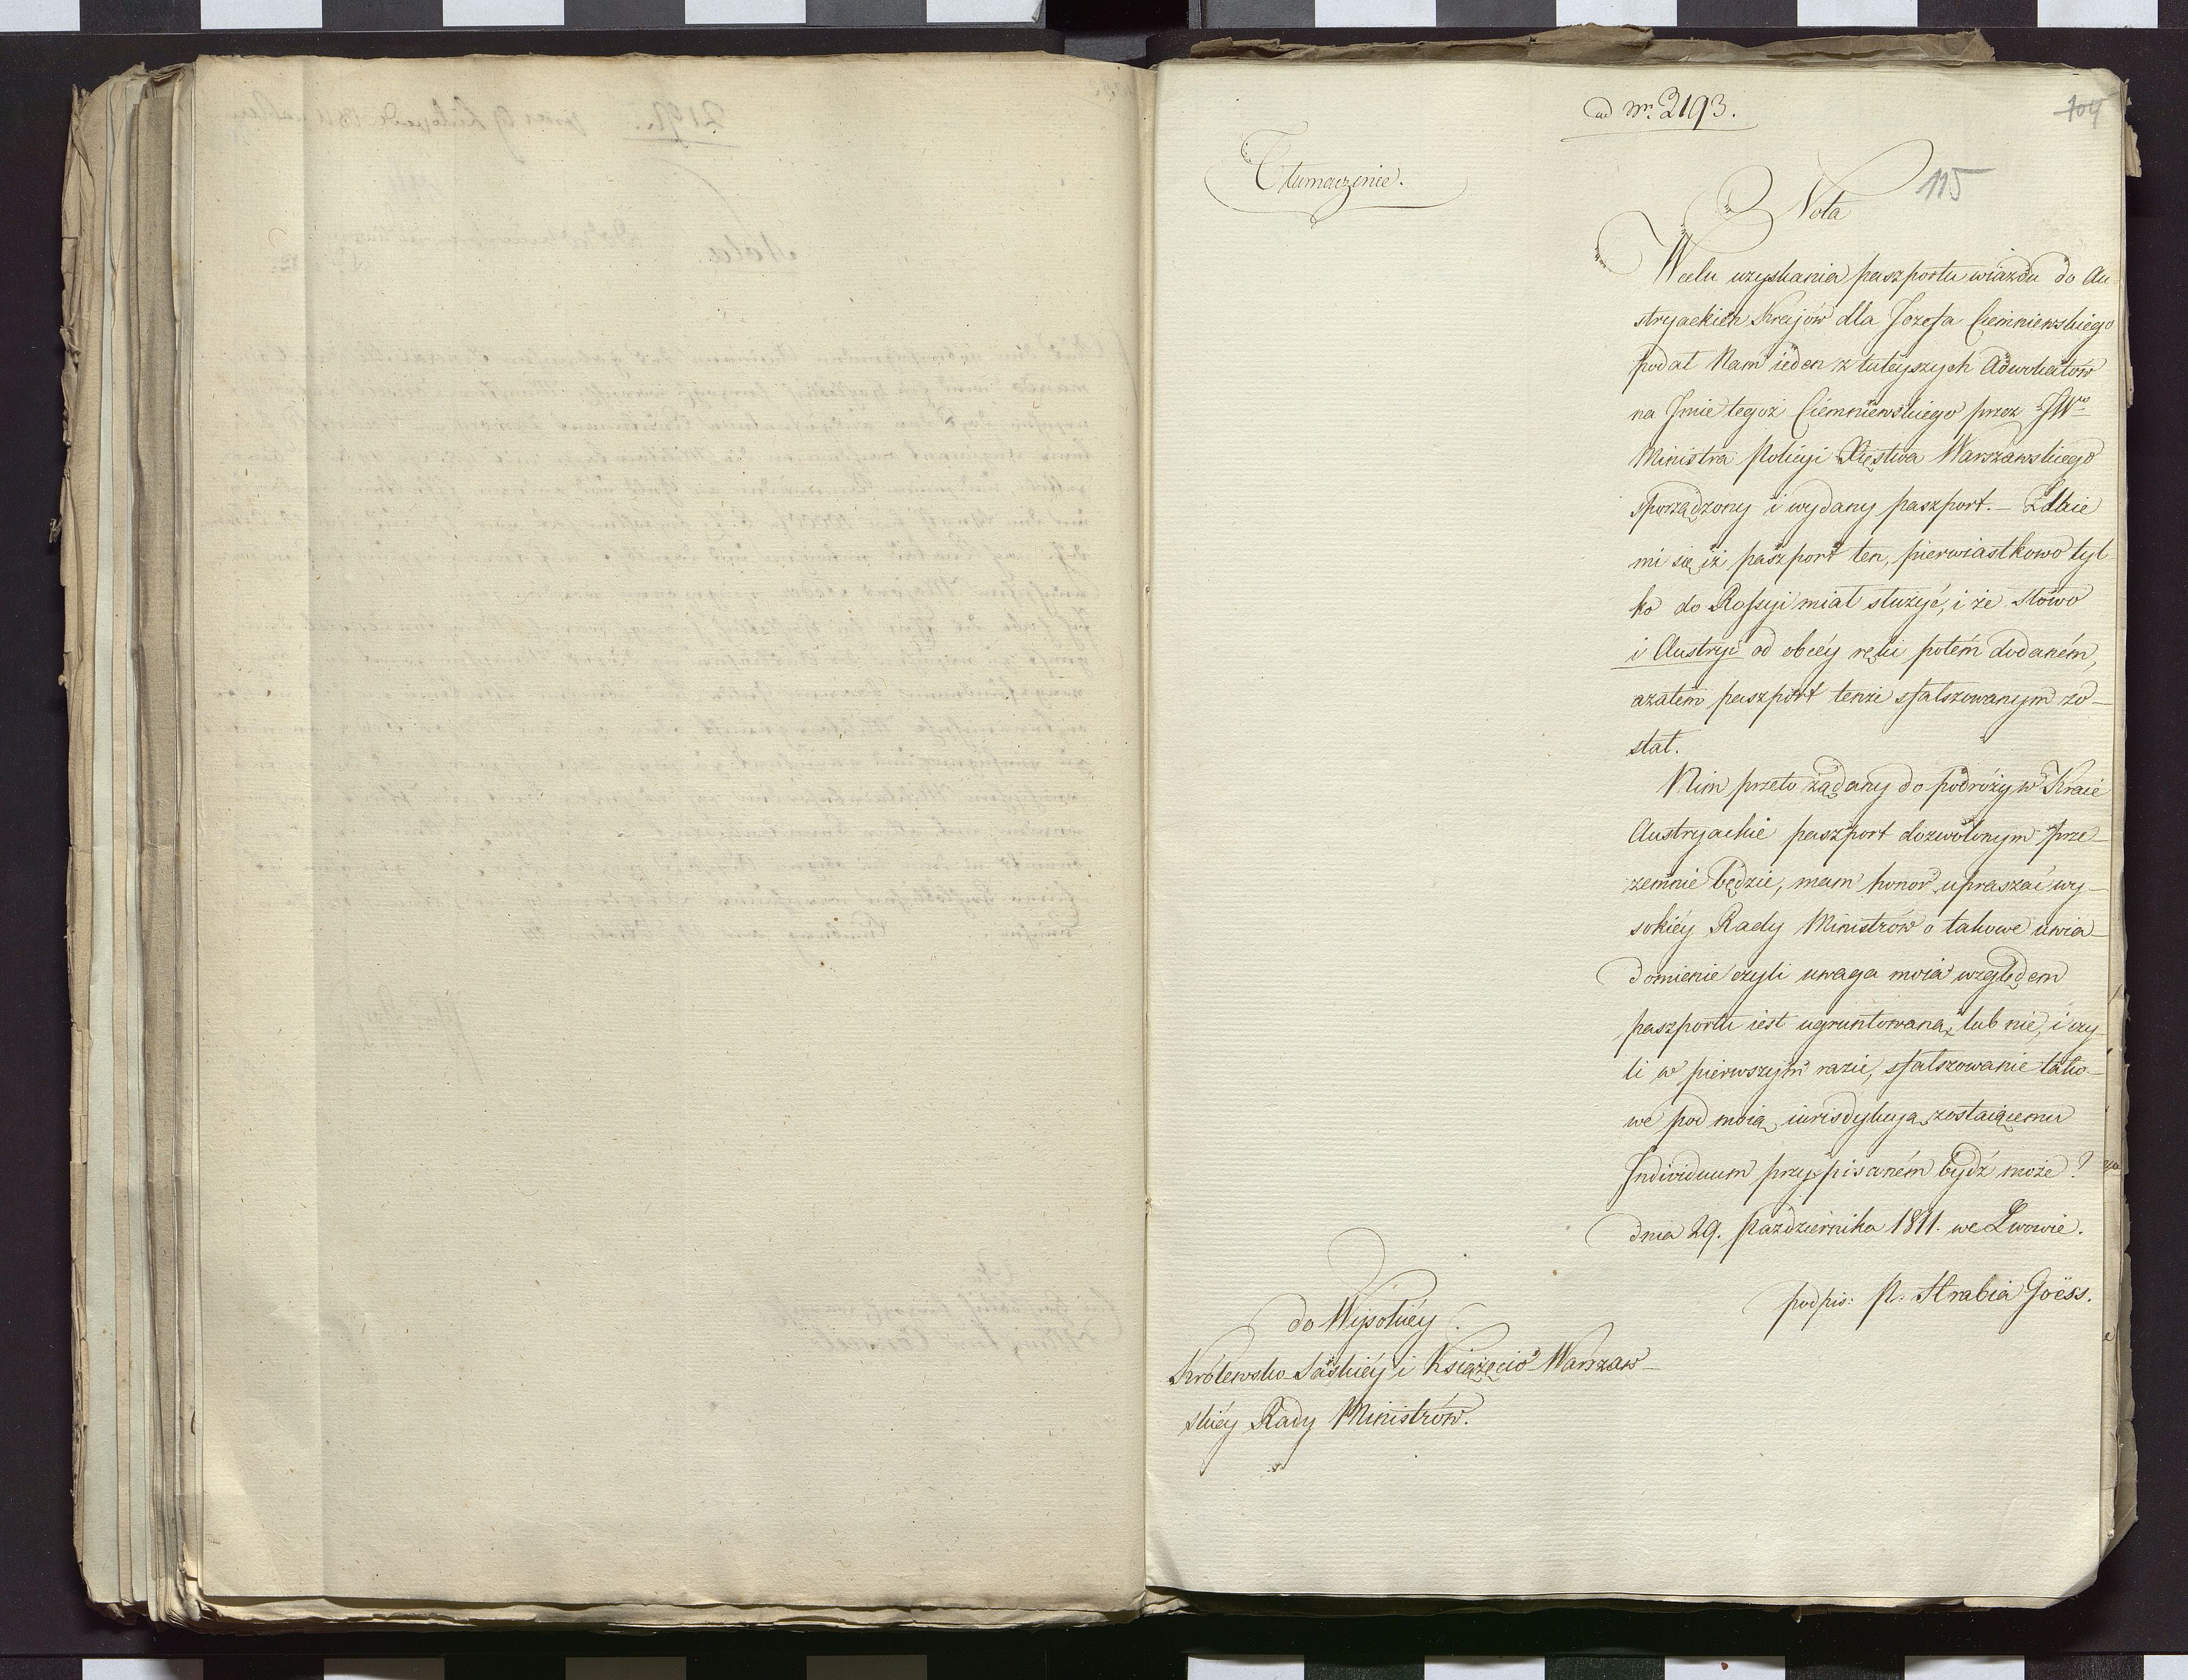 ad Nr. 2193.
104
115
Tłumaczenie.
Nota
W celu uzyskania paszportu wiazdu do Au-
stryackich Kraiów dla Jozefa Ciemniewskiego
podał Nam ieden z tuteyszych Adwokatów
na Jmie tegoż Ciemniewskiego przez JWo
Ministra Policyi Xięstwa Warszawskiego
sporządzony i wydany paszport. – Zdaie
mi się iż paszport ten, pierwiastkowo tyl
ko do Rossyi miał służyć, i że słowo
i Austryi od obcéy ręki potém dodaném,
azatém paszport tenże sfałszowanym zo-
stał.
Nim przeto żądany do podróży w Kraie
Austryackie paszport dozwolonym prze-
zemnie będzie, mam honor upraszać wy-
sokiéy Rady Ministrów o takowe uwia-
domienie czyli uwaga moia względem
paszportu iest ugruntowaną lub nie, i czy-
li w pierwszym razie, sfałszowanie tako-
we pod moią iurisdykcyą zostaiącemu
Individuum przypisaném bydź może?
dnia 29. Października 1811. we Lwowie.
podpis: P. Hrabia Goëss.
do Wysokiéy
Królewsko Saskiéy i Książęcio Warszaw-
skiéy Rady Ministrów.